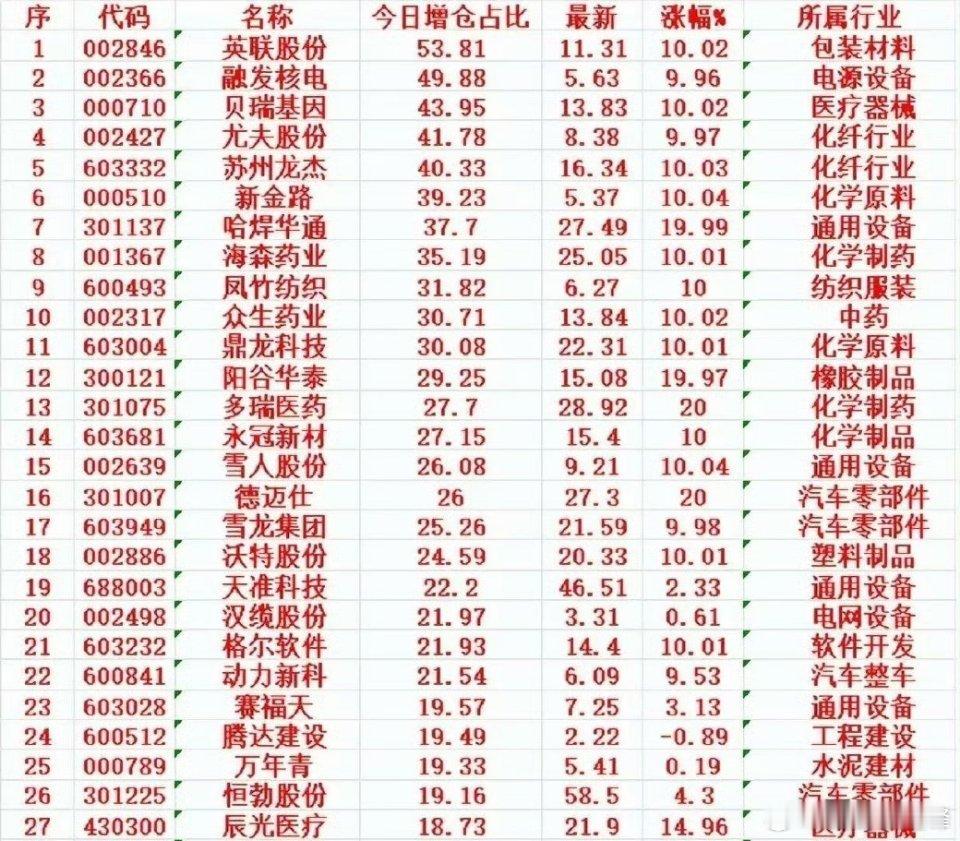 序 代码 名称 今日增仓占比 最新 涨幅% 所属行业
1 002846 英联股份 53.81 11.31 10.02 包装材料
2 002366 融发核电 49.88 5.63 9.96 电源设备
3 000710 贝瑞基因 43.95 13.83 10.02 医疗器械
4 002427 尤夫股份 41.78 8.38 9.97 化纤行业
5 603332 苏州龙杰 40.33 16.34 10.03 化纤行业
6 000510 新金路 39.23 5.37 10.04 化学原料
7 301137 哈焊华通 37.7 27.49 19.99 通用设备
8 001367 海森药业 35.19 25.05 10.01 化学制药
9 600493 凤竹纺织 31.82 6.27 10 纺织服装
10 002317 众生药业 30.71 13.84 10.02 中药
11 603004 鼎龙科技 30.08 22.31 10.01 化学原料
12 300121 阳谷华泰 29.25 15.08 19.97 橡胶制品
13 301075 多瑞医药 27.7 28.92 20 化学制药
14 603681 永冠新材 27.15 15.4 10 化学制品
15 002639 雪人股份 26.08 9.21 10.04 通用设备
16 301007 德迈仕 26 27.3 20 汽车零部件
17 603949 雪龙集团 25.26 21.59 9.98 汽车零部件
18 002886 沃特股份 24.59 20.33 10.01 塑料制品
19 688003 天准科技 22.2 46.51 2.33 通用设备
20 002498 汉缆股份 21.97 3.31 0.61 电网设备
21 603232 格尔软件 21.93 14.4 10.01 软件开发
22 600841 动力新科 21.54 6.09 9.53 汽车整车
23 603028 赛福天 19.57 7.25 3.13 通用设备
24 600512 腾达建设 19.49 2.22 -0.89 工程建设
25 000789 万年青 19.33 5.41 0.19 水泥建材
26 301225 恒勃股份 19.16 58.5 4.3 汽车零部件
27 430300 辰光医疗 18.73 21.9 14.96 医疗器械